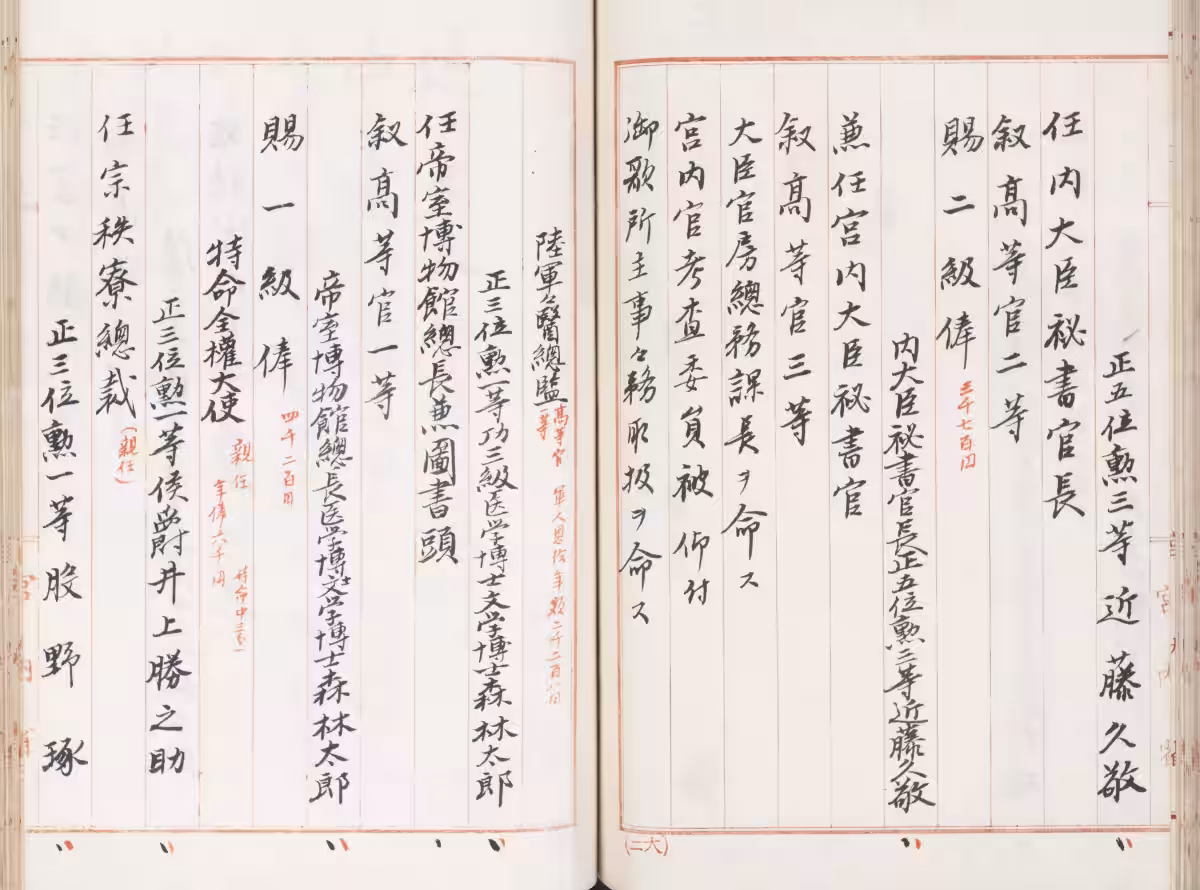 正五位勲三等近藤久敬
任内大臣祕書官長
叙高等官二等
賜二級俸
三千七百円
内大臣祕書官長正五位勲三等近藤久敬
兼任宮内大臣祕書官
叙高等官三等
大臣官房總務課長ヲ命ス
宮内官考査委員被仰付
御歌所主事々務取扱ヲ命ス
(二大)
陸軍々醫總監
高等官一等
軍人恩給年額二千二百八円
正三位勲一等功三級医学博士文学博士森林太郎
任帝室博物館總長兼圖書頭
叙高等官一等
帝室博物館總長医学博士文学博士森林太郎
賜一級俸
四千二百円
特命全權大使
親任
年俸六千円
正三位勲一等侯爵井上勝之助
任宗秩寮總裁
(親任)
正三位勲一等股野琢